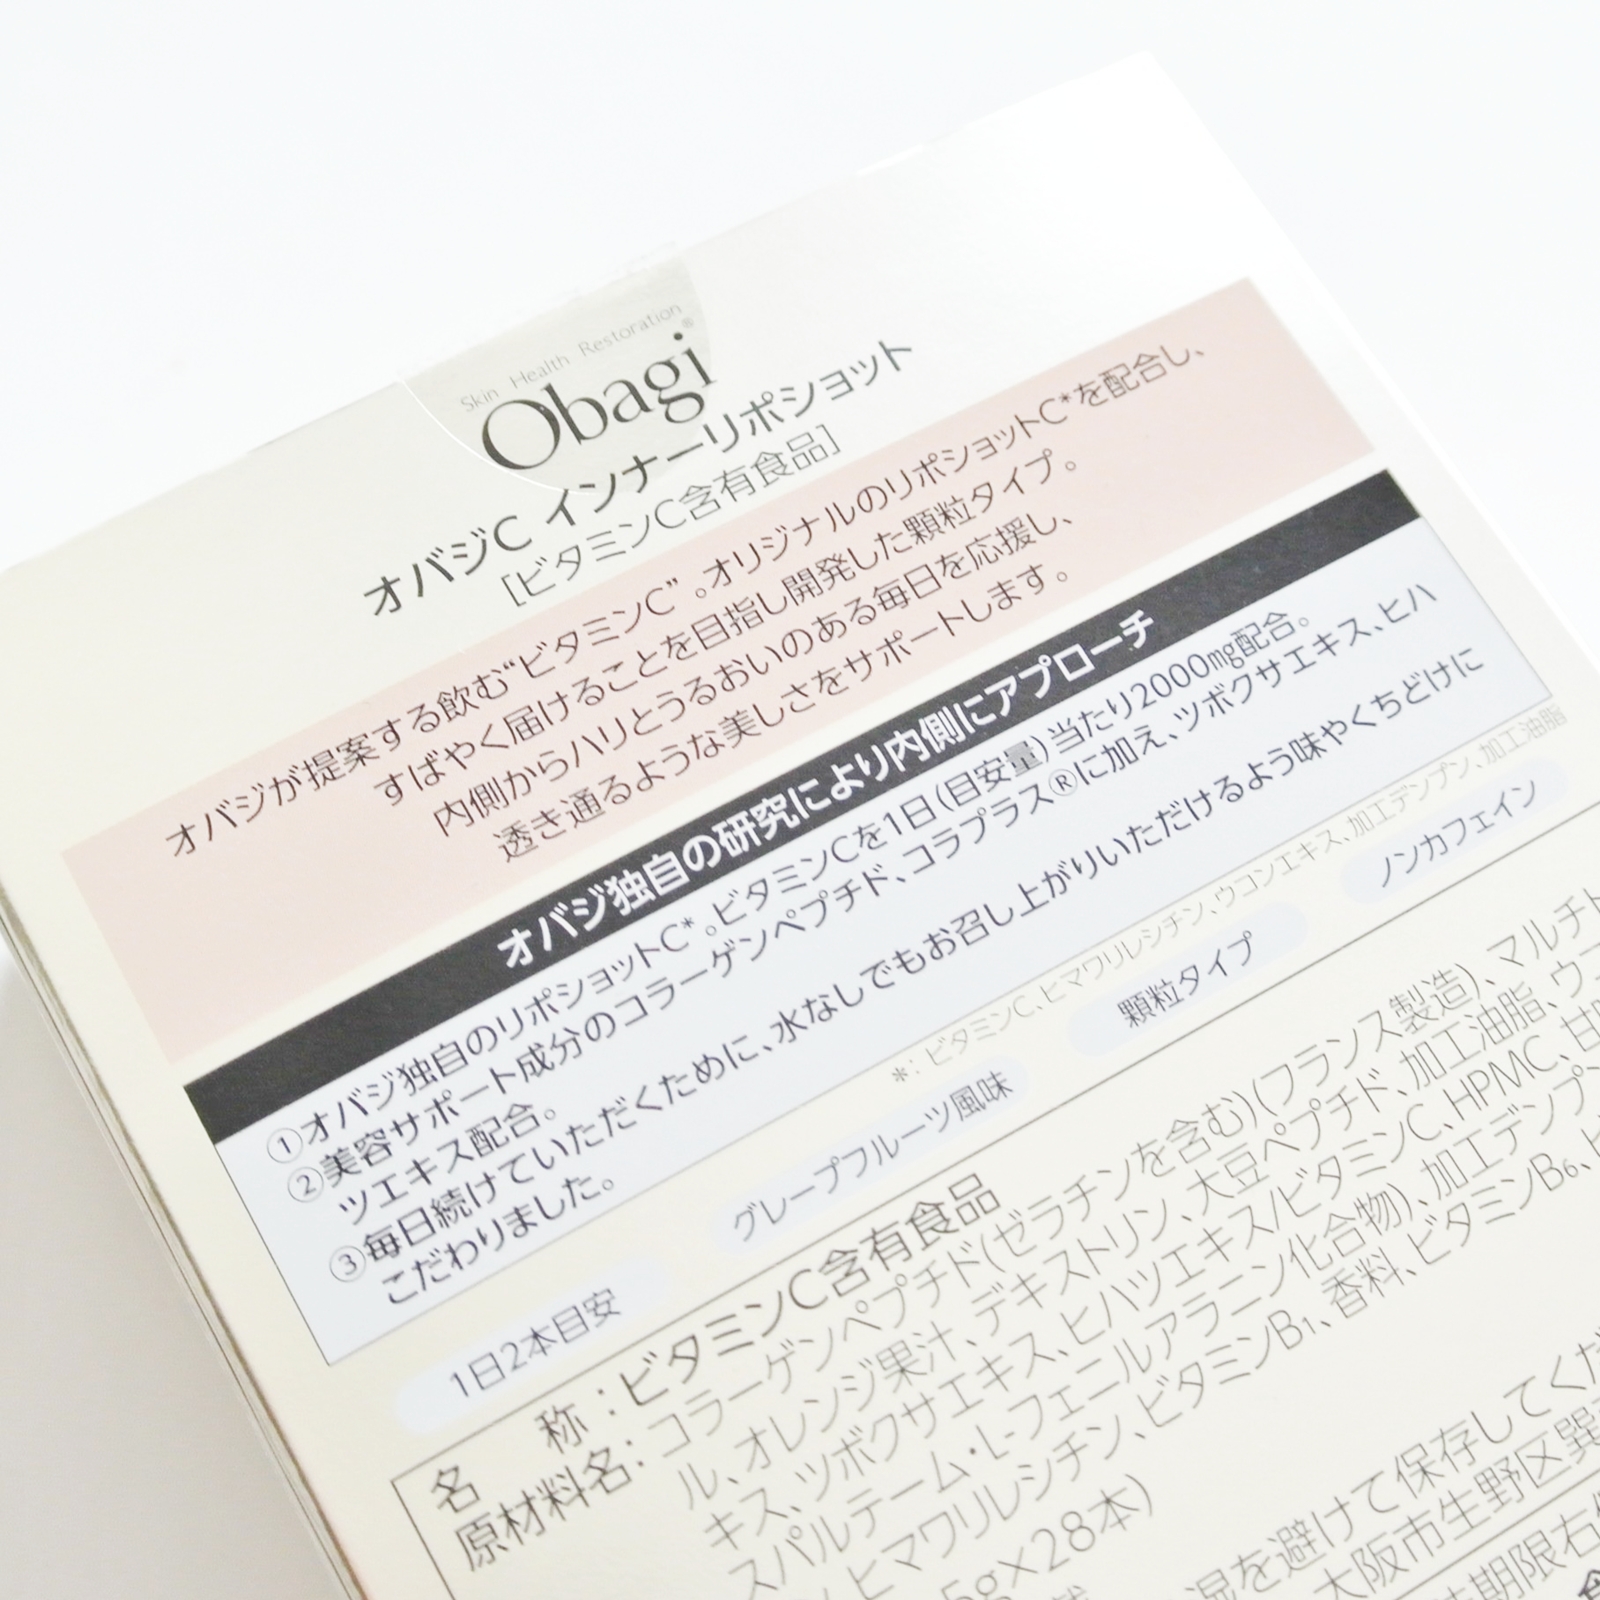 Skin Health Restoration
Obagi®
オバジC インナーリポショット
[ビタミンC含有食品]
オバジが提案する飲む“ビタミンC”。オリジナルのリポショットC*を配合し、
すばやく届けることを目指し開発した顆粒タイプ。
内側からハリとうるおいのある毎日を応援し、
透き通るような美しさをサポートします。
オバジ独自の研究により内側にアプローチ
①オバジ独自のリポショットC*。ビタミンCを1日(目安量)当たり2000mg配合。
②美容サポート成分のコラーゲンペプチド、コラプラス®に加え、ツボクサエキス、ヒハ
ツエキス配合。
③毎日続けていただくために、水なしでもお召し上がりいただけるよう味やくちどけに
こだわりました。
*:ビタミンC、ヒマワリレシチン、ウコンエキス、加工デンプン、加工油脂
1日2本目安 グレープフルーツ風味 顆粒タイプ ノンカフェイン
名 称:ビタミンC含有食品
原材料名:コラーゲンペプチド(ゼラチンを含む)(フランス製造)、マルチト
ル、オレンジ果汁、デキストリン、大豆ペプチド、加工油脂、ウコ
キス、ツボクサエキス、ヒハツエキス/ビタミンC、HPMC、甘
スパルテーム・L-フェニルアラニン化合物)、加工デンプ
ヒマワリレシチン、ビタミンB₁、香料、ビタミンB₆、
5g×28本)
湿を避けて保存してくだ
大阪市生野区巽
期限右